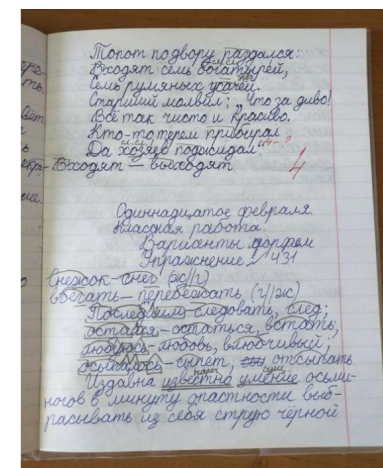 Топот по двору раздался:
Входят семь богатырей,
Семь румяных усачей.
Старший молвил: „Что за диво!
Всё так чисто и красиво.
Кто-то терем прибирал
Да хозяев поджидал."
Входят — выходят
4
Одиннадцатое февраля.
Классная работа.
Варианты морфем
Упражнение 431
Снежок-снег (ж//г)
вбегать-перебежать (г//ж)
Последним-следовать, след;
остался-остаться, встать;
любовь, влюбчивый;
осыпалось-сыпет, отсыпать.
Издавна известно умение осьми-
ногов в минуту опастности выб-
расывать из себя струю чёрной